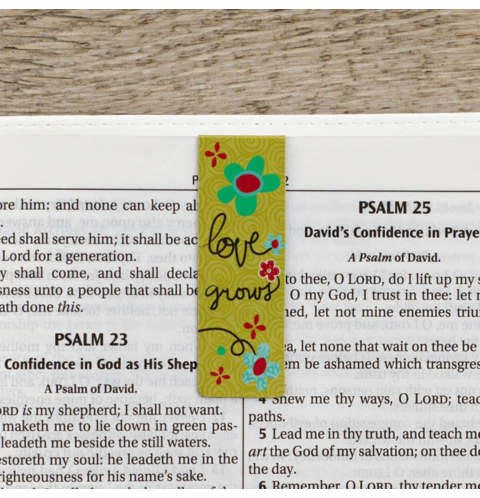 ore him: and none can keep al
eed shall serve him; it shall be ac
Lord for a generation.
y shall come, and shall decla
sness unto a people that shall be
ath done this.
PSALM 23
Confidence in God as His Shep
A Psalm of David.
ORD is my shepherd; I shall not want.
maketh me to lie down in green pas-
leadeth me beside the still waters.
estoreth my soul: he leadeth me in the
righteousness for his name's sake.
love
grows
PSALM 25
David's Confidence in Praye
A Psalm of David.
to thee, O LORD, do I lift up my s
O my God, I trust in thee: let
ned, let not mine enemies triu
ea, let none that wait on thee be
em be ashamed which transgres
4 Shew me thy ways, O LORD; teac
paths.
5 Lead me in thy truth, and teach me
art the God of my salvation; on thee do
the day.
6 Remember, O LORD, thy tender me